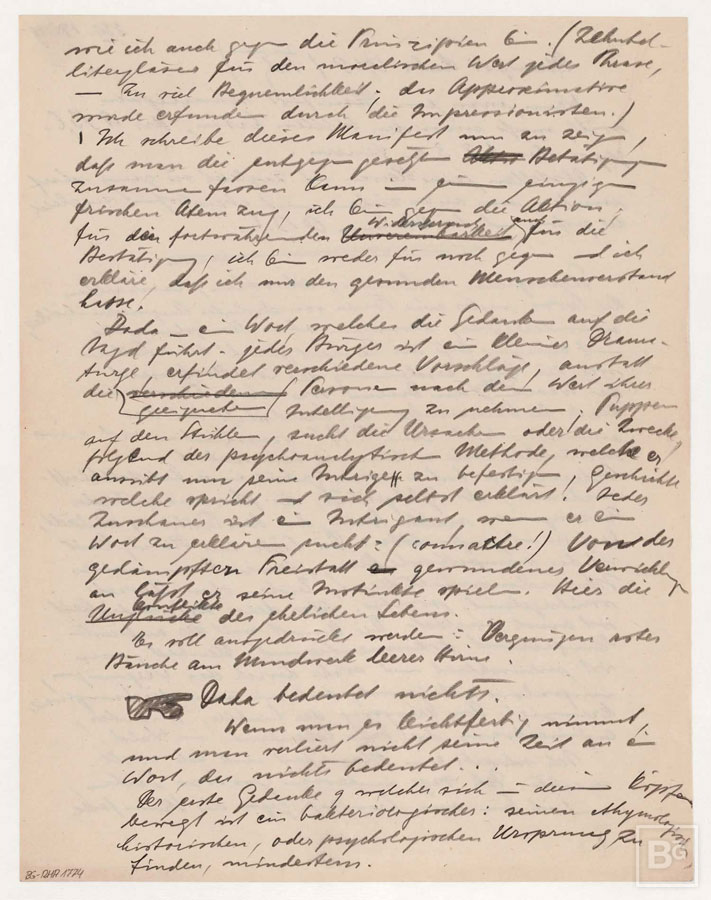 wie ich auch gegen die Prinzipien bin. (Zehntel-
litergläser für den moralischen Wert jeder Phrase,
— Zu viel Bequemlichkeit. das Approximative
wurde erfunden durch die Impressionisten.)
Ich schreibe dieses Manifest um zu zeigen,
daß man die entgegen gesetzten Betätigungen
zusammen fassen kann in einem einzigen
frischen Atemzug, ich bin gegen die Aktion;
für den fortwährenden Widerspruch auch für die
Bestätigung, ich bin weder für noch gegen und ich
erkläre, daß ich nur den gesunden Menschenverstand
hasse.
Dada — ein Wort, welches die Gedanken auf die
Jagd führt. jeder Bürger ist ein kleiner Drama-
turge, erfindet verschiedene Vorschläge, anstatt
die geeigneten Personen nach dem Wert ihrer
Intelligenz zu nehmen, Puppen
auf den Stühlen, sucht die Ursachen oder die Zwecke,
folgend der psychoanalytischen Methode, welche er
ausübt um seine Intrigen zu befestigen, Geschichte
welche spricht und sich selbst erklärt. Jeder
Zuschauer ist ein Intrigant, wenn er ein
Wort zu erklären sucht: (connaître!) Von der
gedämpften Freistatt gewundener Verwicklungen
an läßt er seine Instinkte spielen. Hier die
Konflikte des ehelichen Lebens.
Es soll ausgedrückt werden: Vergnügen roter
Bäuche am Mundwerk leerer Hirne.
Dada bedeutet nichts.
Wenn man es leichtfertig nimmt,
und man verliert nicht seine Zeit an ein
Wort, das nichts bedeutet...
Der erste Gedanke welcher sich in diesen Köpfen
bewegt ist ein bakteriologischer: seinen
historischen, oder psychologischen Ursprung zu
finden, mindestens.
BG-RHA 1774
BG